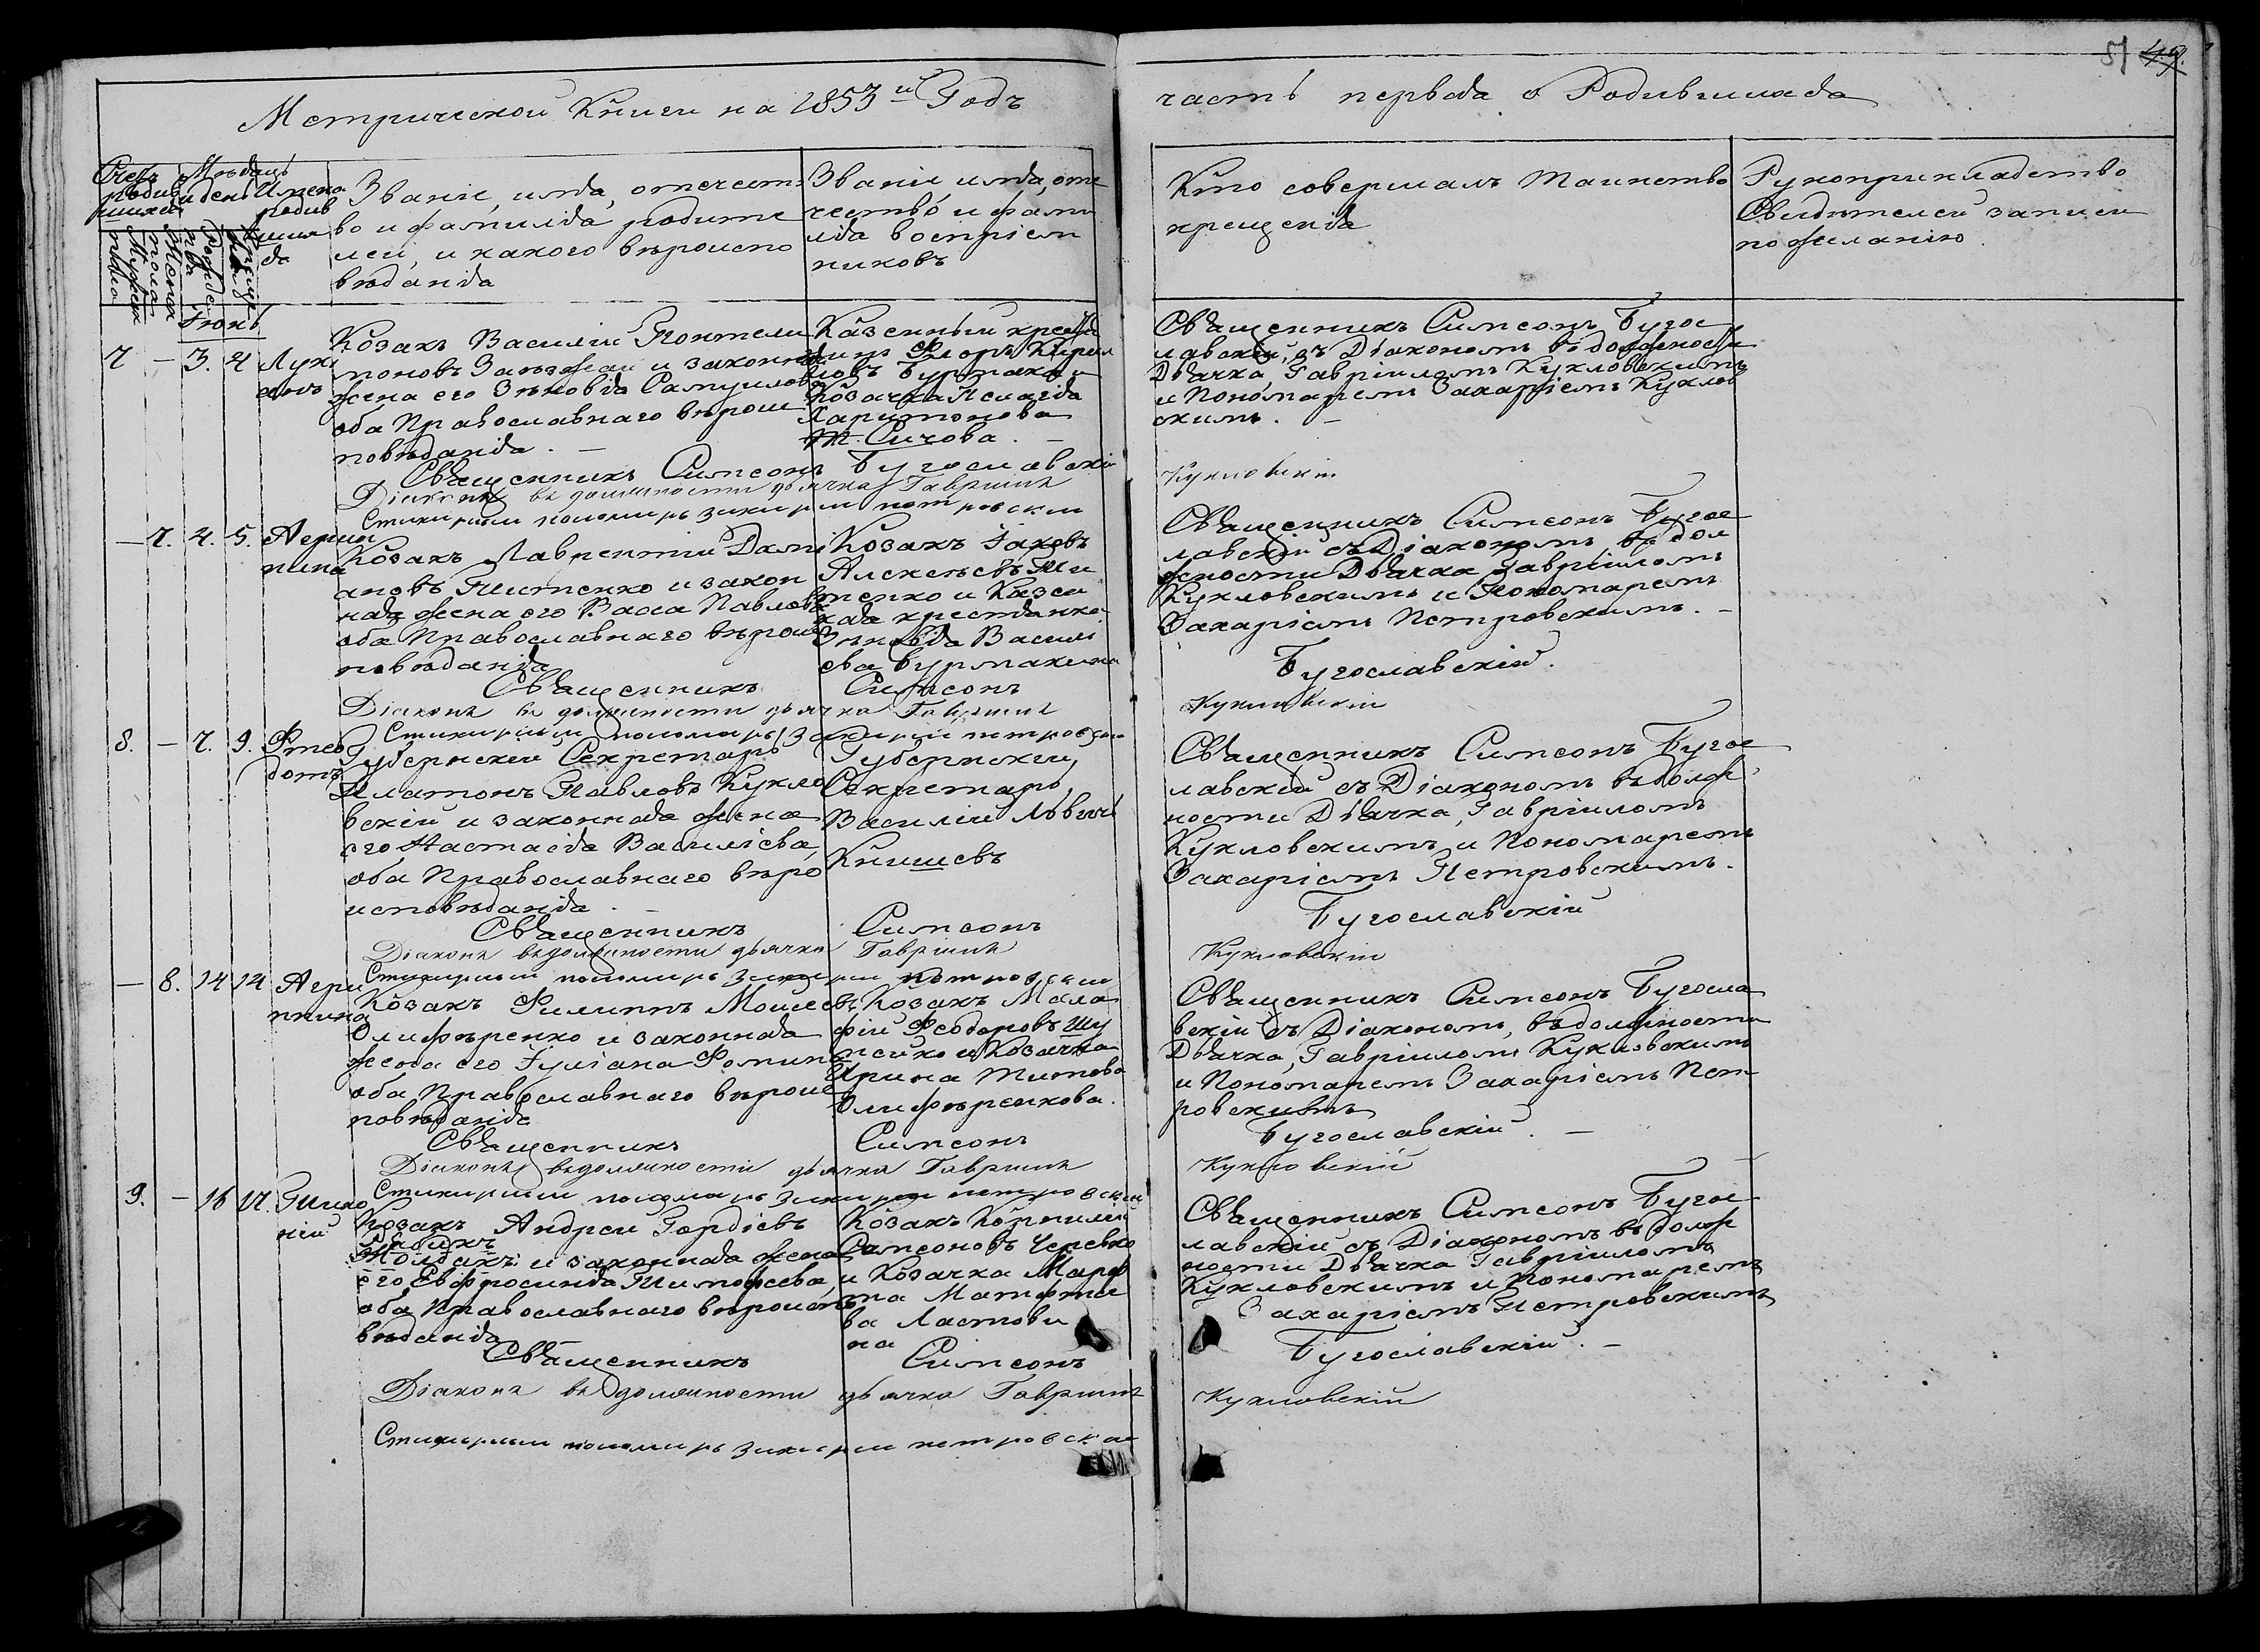 51 49.
Метрической Книги на 1853й Годъ
часть первая о Родившихся
Счетъ родившихся
Мужеска пола
Женска пола
Мѣсяцъ и день
Рожденія
Крещенія
Имена родившихся
Званіе, имя, отечест
во и фамилія родите
лей, и какого вѣроиспо
вѣданія
Званіе имя, оте
чество и фами
лія воспріем
никовъ
Кто совершалъ таинство
крещенія
Рукоприкладство
Свидѣтелей записи
по желанію.
Іюнь
7 — 3. 4 Луки
анъ
Козакъ Василій Понтели
моновъ и законна
жена его Зѣновія Самуилова
оба Православнаго вѣроис
повѣданія. —
Казенный крестья
нинъ Флоръ Кирил
ловъ Бурмака и
Козачка Пелагія
Харитонова
Сичова. —
Священникъ Симеонъ Бугос
лавскій, съ Діакономъ въ должности
Дьячка, Гавріиломъ Кукловскимъ
и Пономаремъ Захаріемъ Куклов
скимъ. —
Священникъ Симеонъ Бугославскій
Діаконъ въ должности дьячка Гавріилъ Кукловскій
Стихарный пономарь Захарій Петровскій
— 7. 4. 5. Агрип
пина
Козакъ Лаврентій Даміи
ановъ Титенко и закон
ная жена его Васса Павлова
оба Православнаго вѣроис
повѣданія
Козакъ Іаковъ
Алексѣевъ Ти
тенко и Казен
ная крестьянка
Зѣновія Василі
ева Бурмакина
Священникъ Симеонъ Бугос
лавскій съ Діакономъ въ дол
жности Дьячка Гавріиломъ
Кукловскимъ и Пономаремъ
Захаріемъ Петровскимъ. —
Священникъ Симеонъ Бугославскій.
Діаконъ въ должности дьячка Гавріилъ Кукловскій
Стихарный пономарь Захарій Петровскій
8. — 7. 9. Фтео
дотъ
Губернскій Секретарь
Платонъ Павловъ Кукло
вскій и законная жена
его Настасія Василіева,
оба Православнаго вѣро
исповѣданія. —
Губернскій,
Секретарь,
Василій Львичъ
Книшевъ
Священникъ Симеонъ Бугос
лавскій съ Діакономъ въ долж
ности Дьячка, Гавріиломъ
Кукловскимъ и Пономаремъ
Захаріемъ Петровскимъ.
Священникъ Симеонъ Бугославскій
Діаконъ въ должности дьячка Гавріилъ Кукловскій
Стихарный пономарь Захарій Петровскій
— 8. 14 14 Агри
ппина
Козакъ Филиппъ Моисеевъ
Олифѣренко и законная
жена его Іуліана Фомина
оба Православнаго вѣроис
повѣданія
Козакъ Мала
фій Феодоровъ Шу
пейко и Козачка
Ирина Титова
Олифѣренкова.
Священникъ Симеонъ Бугосла
вскій съ Діакономъ, въ должности
Дьячка, Гавріиломъ Кукловскимъ
и Пономаремъ Захаріемъ Пет
ровскимъ
Священникъ Симеонъ Бугославскій. —
Діаконъ въ должности дьячка Гавріилъ Кукловскій
Стихарный пономарь Захарій Петровскій
9. — 16 17. Тихо
ній
Козакъ Андрей Гордіевъ
и законная жена
его Евфросинія Тимофѣева,
оба Православнаго вѣроиспо
вѣданія
Козакъ Корнилій
Самсоновъ Черевко
и Козачка Марф
та Матфѣе
ва Ластови
на
Священникъ Симеонъ Бугос
лавскій съ Діакономъ въ долж
ности Дьячка Гавріиломъ
Кукловскимъ и Пономаремъ
Захаріемъ Петровскимъ
Священникъ Симеонъ Бугославскій. —
Діаконъ въ должности дьячка Гавріилъ Кукловскій
Стихарный пономарь Захарій Петровскій